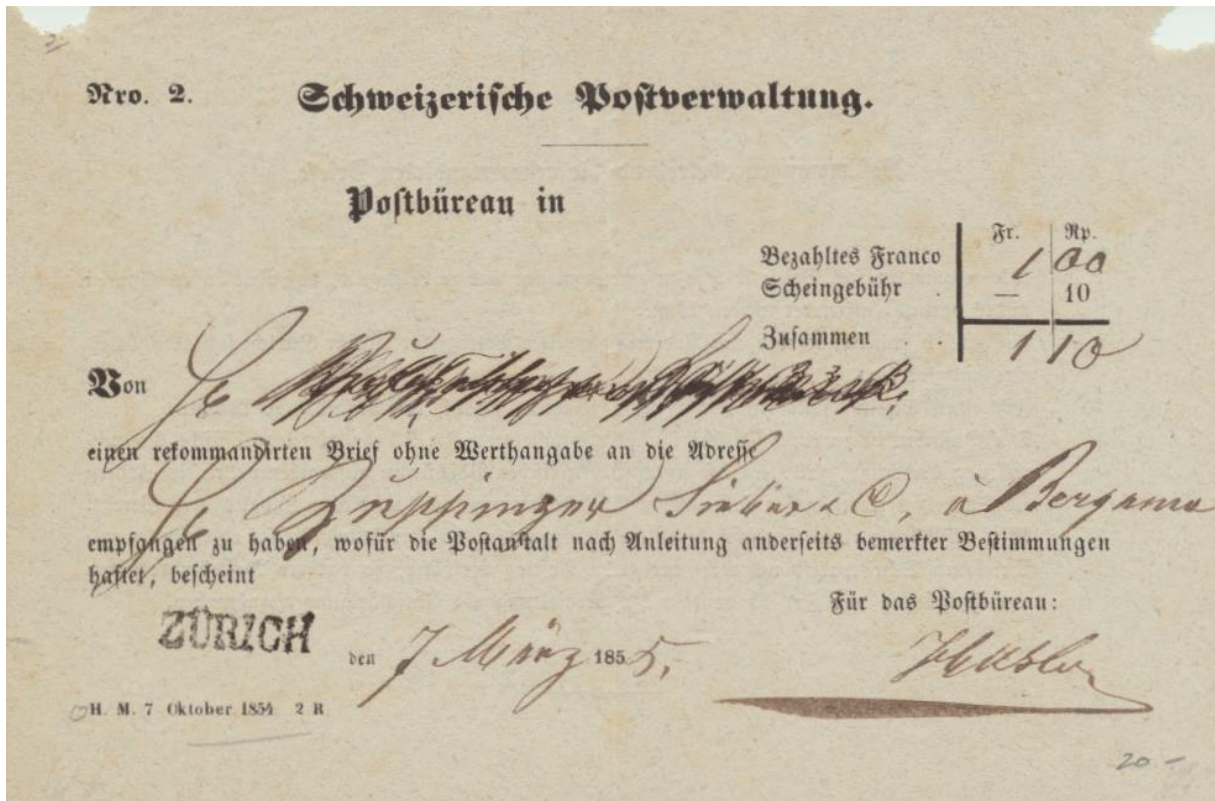 Nro. 2. Schweizerische Postverwaltung.
Postbüreau in
Fr. Rp.
Bezahltes Franco 1 00
Scheingebühr . — 10
Zusammen . . 1 10
Von
einen rekommandirten Brief ohne Werthangabe an die Adresse
Zuppinger Siber & C, à Bergamo
empfangen zu haben, wofür die Postanstalt nach Anleitung anderseits bemerkter Bestimmungen
haftet, bescheint
Für das Postbüreau:
ZÜRICH den 7 März 1855.
H. M. 7 Oktober 1854 2 R
20 -